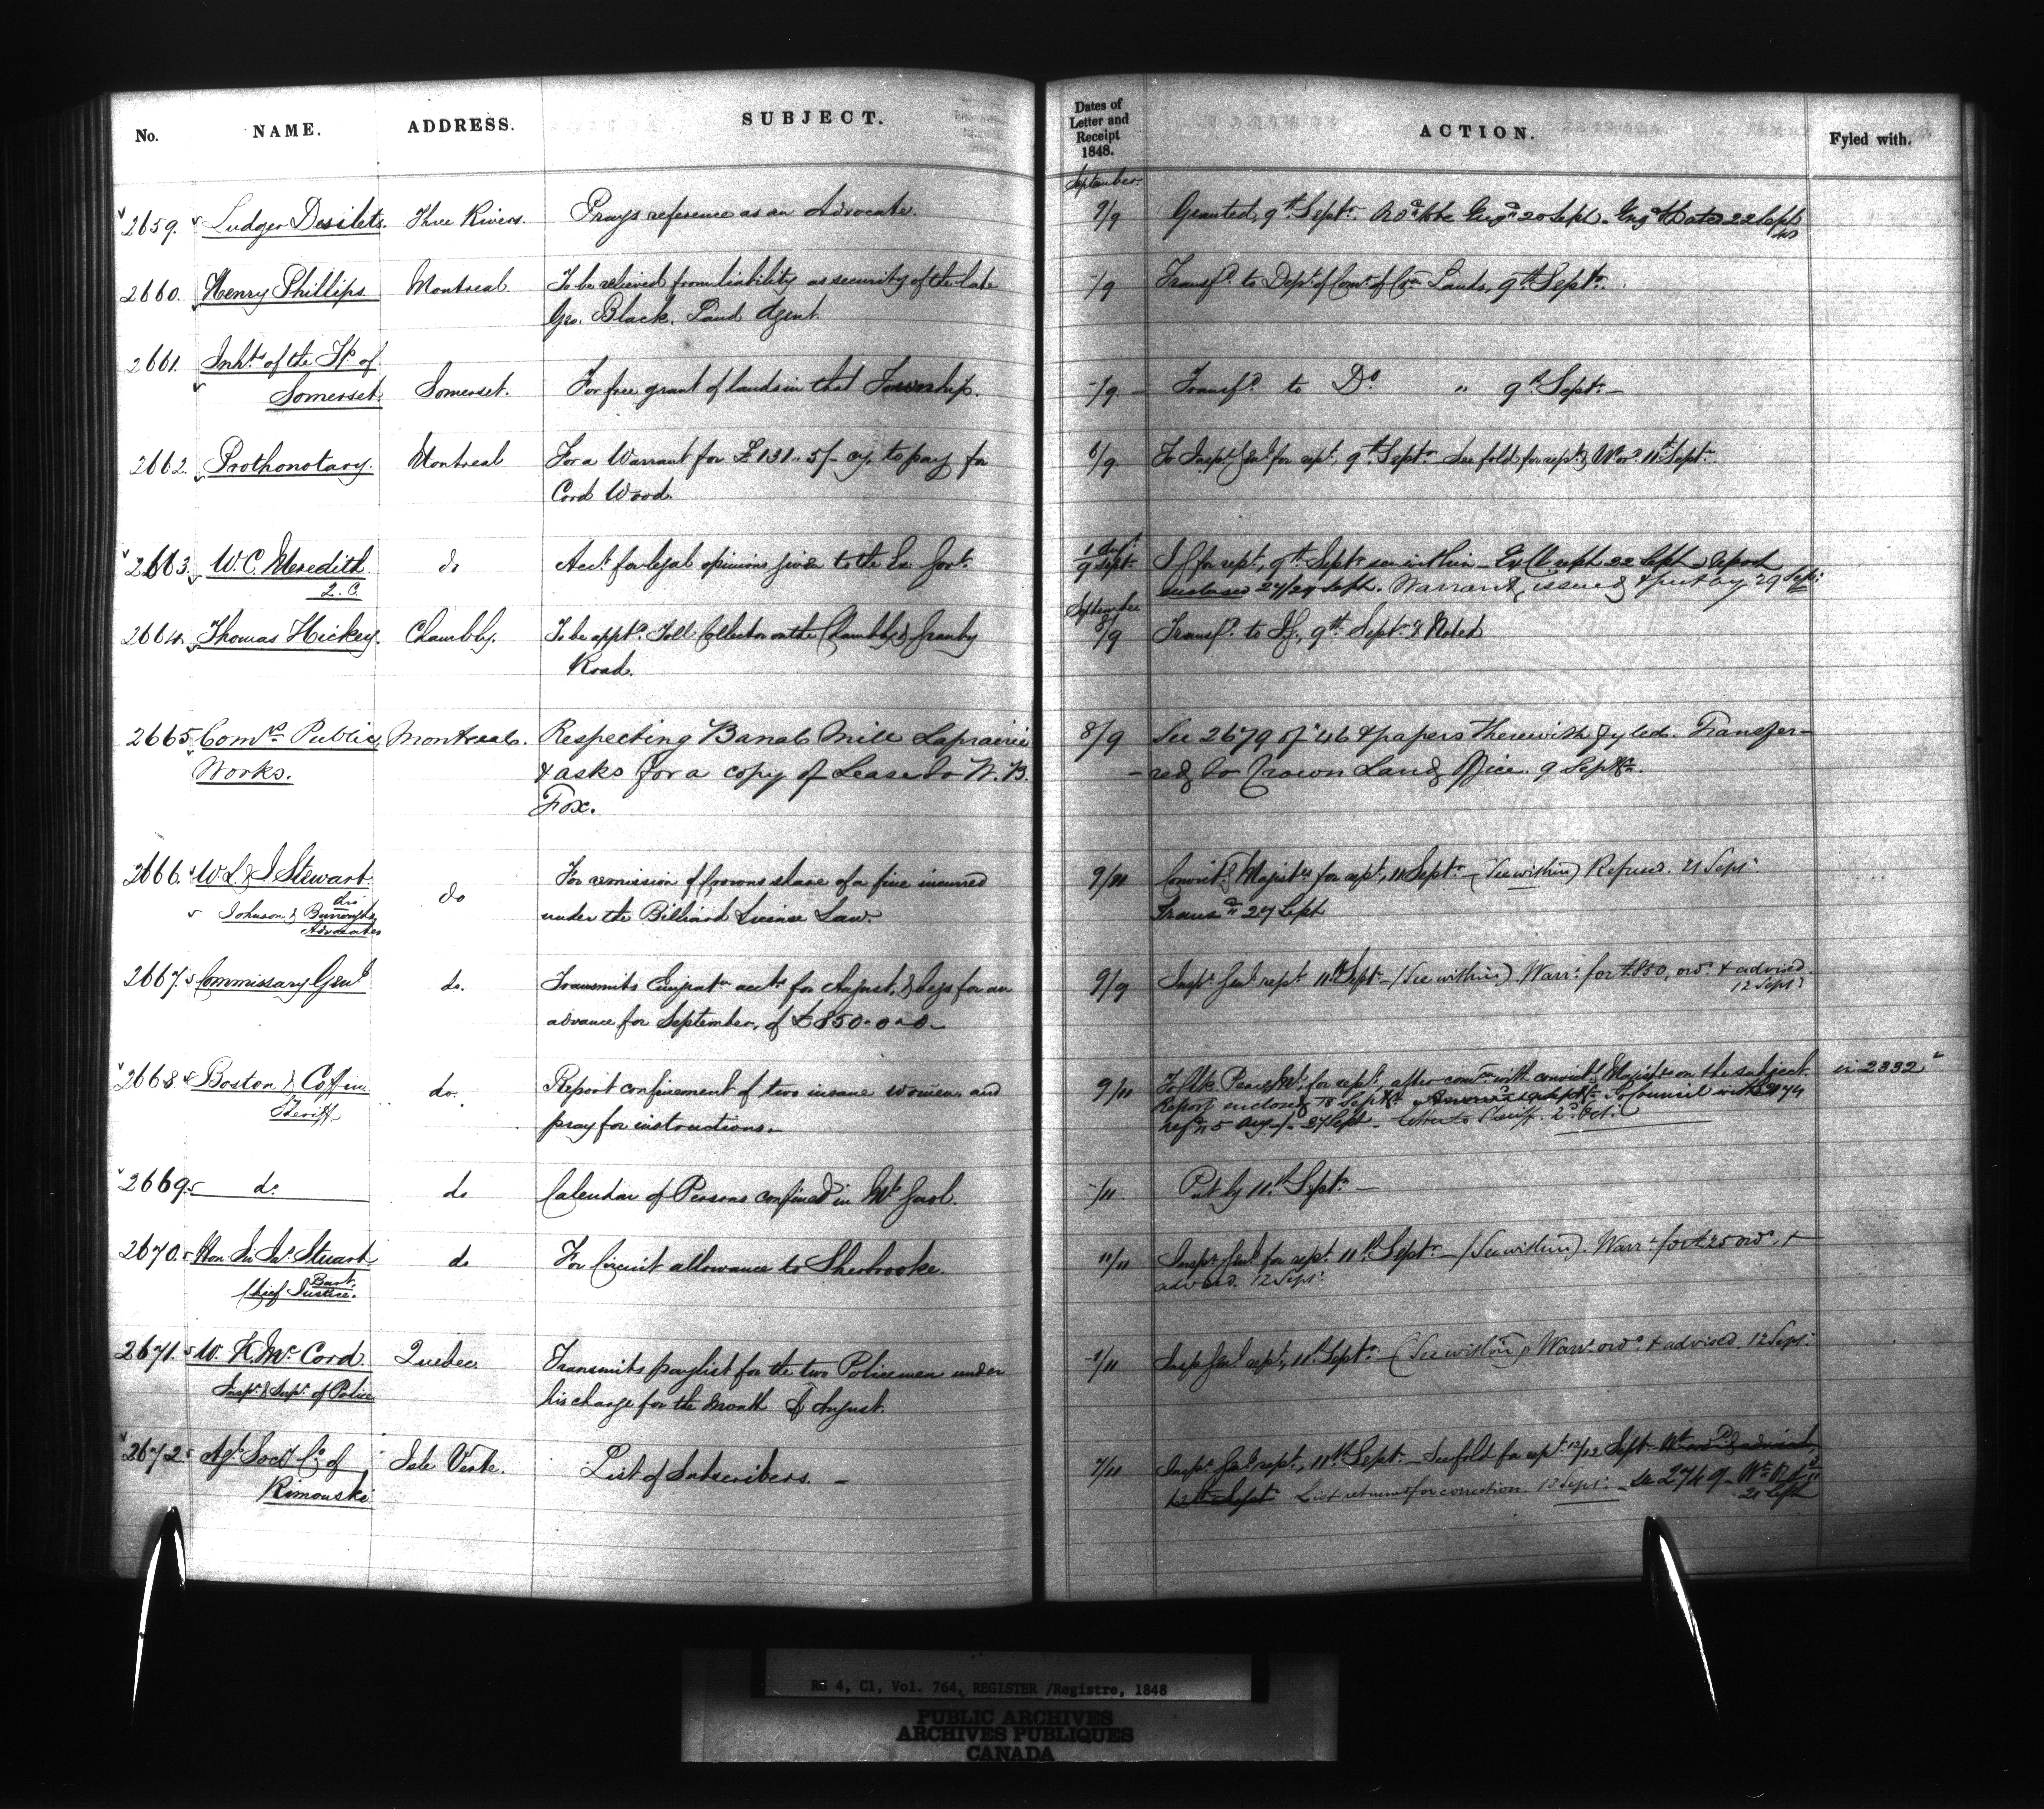 No. NAME. ADDRESS. SUBJECT. Dates of Letter and Receipt 1848. ACTION. Fyled with.
September
2659. Ludger Desilets. Three Rivers. Prays reference as an Advocate. 9/9 Granted, 9th Septr.
2660. Henry Phillips Montreal. To be relieved from liability as security of the late -/9 Transfd. to Dept. of Comr. of Crn. Lands, 9th Septr.
Geo. Black. Land Agent.
2661. Inhts. of the Tp. of
Somerset. Somerset. For free grant of lands in that Township. -/9 - Transfd. to Do. " 9th Septr. -
2662. Prothonotary. Montreal For a Warrant for £131..5/- cy. to pay for 6/9 To Inspr. Genl. for rept. 9th Septr. See fold for rept. & Wt. ord. 11th Septr.
Cord Wood.
2663. W. C. Meredith do Acct. for legal opinions given to the Ex. Govt. 9 Sept. I.G. for rept., 9th Septr. see within - Ex. Cl. rept. 22 Sept. Report
Q. C. enclosed 27/29 Sept. Warrant issued & put by 29 Sep:
September
2664. Thomas Hickey. Chambly. To be apptd. Toll Collector on the Chambly & Granby 8/9 Transfd. to I.G., 9th Septr. & Noted
Road.
2665. Comrs. Public Montreal. Respecting Banal Mill Laprairie 8/9 See 2679 of '46 & papers therewith fyled. Transfer-
Works. & asks for a copy of Lease to W. B. -red to Crown Land Office. 9 Septbr.
Fox.
2666. W. L. & J. Stewart. do For remission of Crowns share of a fine incurred 9/11 Convict. Majistrs. for rept., 11 Septr. - (See within) Refused. 21 Sept.
Johnson & Burroughs under the Billiard License Law. Transd. 27 Sept
Advocates
2667. Commissary Genl. do. Transmits Emigratn. accts. for August, & begs for an 9/9 Inspr. Genl. rept. 11th Septr. - (See within) Warrt. for £850, ord. & advised.
advance for September, of £850-0-0- 12 Sept.
2668 Boston & Coffin do. Report confinement of two insane women, and 9/11 To Clk Peace Ml. for rept., after comn. with convictg. Majists. on the subject in 2332
Sheriff pray for instructions. Report enclosed 18 Septbr.
27 Sept - Letter to Sheriff. 2d. Oct:
2669. do. do Calendar of Persons confined in Ml. Gaol. -/11 Put by 11th Septr. -
2670. Hon. Sir Js. Stuart do For Circuit allowance to Sherbrooke. 11/11 Inspr. Genl. for rept. 11th Septr. - (See within). Warrt. for £25 ord. &
Bart. advised. 12 Sept.
Chief Justice.
2671. W. K. McCord Quebec. Transmits paylist for the two Policemen under -/11 Insp. Genl. rept., 11th Septr. - (See within) Warrt. ord. & advised. 12 Sept.
Inspr. & Supt. of Police his charge for the Month of August.
2672. Agl. Socy. Co. of Isle Verte. List of Subscribers. - 7/11 Inspr. Genl. rept., 11th Sept. - See fold for rept. 12/12 Sept.
Rimouski 12th Sept. List returned for correction. 13 Sept. - See 2749 -
21 Sept
RG 4, C1, Vol. 764, REGISTER /Registre, 1848
PUBLIC ARCHIVES
ARCHIVES PUBLIQUES
CANADA